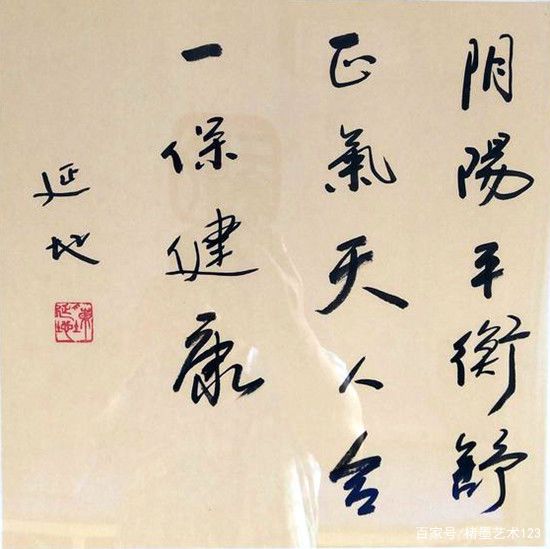 阴陽平衡舒
正氣天人合
一保健康
延地
百家号/楮墨艺术123